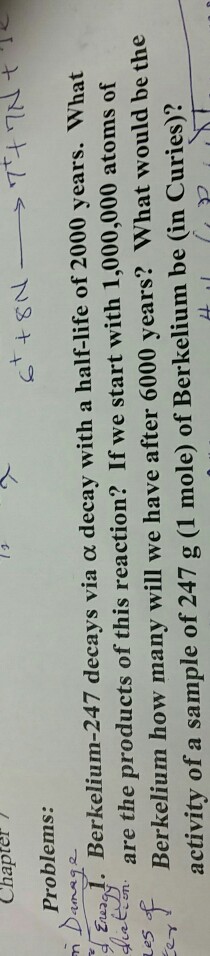 6⁺ + 8N → 7⁺ + 7N +
Chapter 7
Problems:
1. Berkelium-247 decays via α decay with a half-life of 2000 years. What
are the products of this reaction? If we start with 1,000,000 atoms of
Berkelium how many will we have after 6000 years? What would be the
activity of a sample of 247 g (1 mole) of Berkelium be (in Curies)?
Damage
Energy